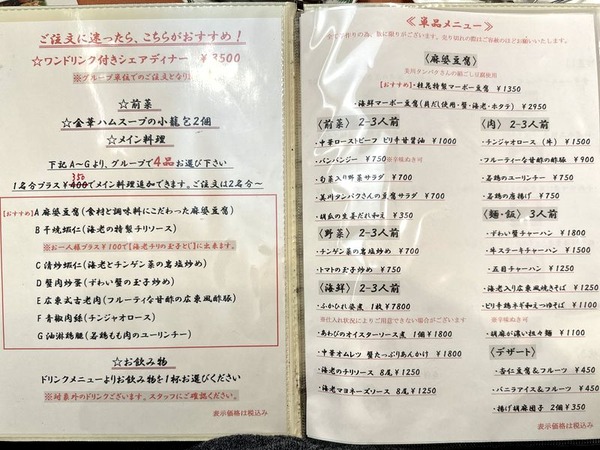 ご注文に迷ったら、こちらがおすすめ！
☆ワンドリンク付きシェアディナー ¥3500
※グループ単位でのご注文となり
☆前菜
☆金華ハムスープの小籠包2個
☆メイン料理
下記A～Gより、グループで4品お選び下さい
350
1名分プラス¥400でメイン料理追加できます。ご注文は2名分～
【おすすめ】A 麻婆豆腐(食材と調味料にこだわった麻婆豆腐)
B 干焼蝦仁(海老の特製チリソース)
※お一人様プラス¥100で【海老チリの玉子とじ】に出来ます。
C 清炒蝦仁(海老とチンゲン菜の塩炒め)
D 蟹肉炒蛋(ずわい蟹の玉子炒め)
E 広東式古老肉(フルーティな甘酢の広東風酢豚)
F 青椒肉絲(チンジャオロース)
G 油淋鶏腿(若鶏もも肉のユーリンチー)
☆お飲み物
ドリンクメニューよりお飲み物を1杯お選びください
※対象外のドリンクございます。スタッフにご確認ください。
表示価格は税込み
≪単品メニュー≫
全て手作りの為、数に限りがございます。売り切れの際はご容赦のほどお願いいたします。
〈麻婆豆腐〉
美川タンパクさんの絹ごし豆腐使用
【おすすめ】・桂花特製マーボー豆腐 ¥1350
・海鮮マーボー豆腐(貝だし使用・蟹・海老・ホタテ) ¥2950
〈前菜〉2-3人前
・中華ローストビーフ ピリ辛甘醤油 ¥1000
・バンバンジー ¥750 ※辛味ぬき可
・旬菜入り野菜サラダ ¥700
・美川タンパクさんの豆腐サラダ ¥700
・胡瓜の生姜だれ和え ¥350
〈野菜〉2-3人前
・チンゲン菜の塩炒め ¥700
・トマトの玉子炒め ¥750
〈海鮮〉2-3人前
・ふかひれ姿煮 1枚 ¥7800
※仕入れ状況によりご用意できない場合がございます
・あわびのオイスターソース煮 1個 ¥1800
・中華オムレツ 蟹たっぷりあんかけ ¥1800
・海老のチリソース 8尾 ¥1250
・海老マヨネーズソース 8尾 ¥1250
〈肉〉2-3人前
・チンジャオロース(牛) ¥1500
・フルーティーな甘酢の酢豚 ¥900
・若鶏のユーリンチー ¥750
・若鶏の唐揚げ ¥750
〈麺・飯〉3人前
・ずわい蟹チャーハン ¥1500
・牛ステーキチャーハン ¥1500
・五目チャーハン ¥1250
・海老入り広東風焼きそば ¥1250
・ピリ辛鶏ネギ和えつゆそば ¥1100
※辛味ぬき可
・胡麻が濃い担々麺 ¥1100
〈デザート〉
・杏仁豆腐&フルーツ ¥450
・バニラアイス&フルーツ ¥450
・揚げ胡麻団子 2個 ¥350
表示価格は税込み